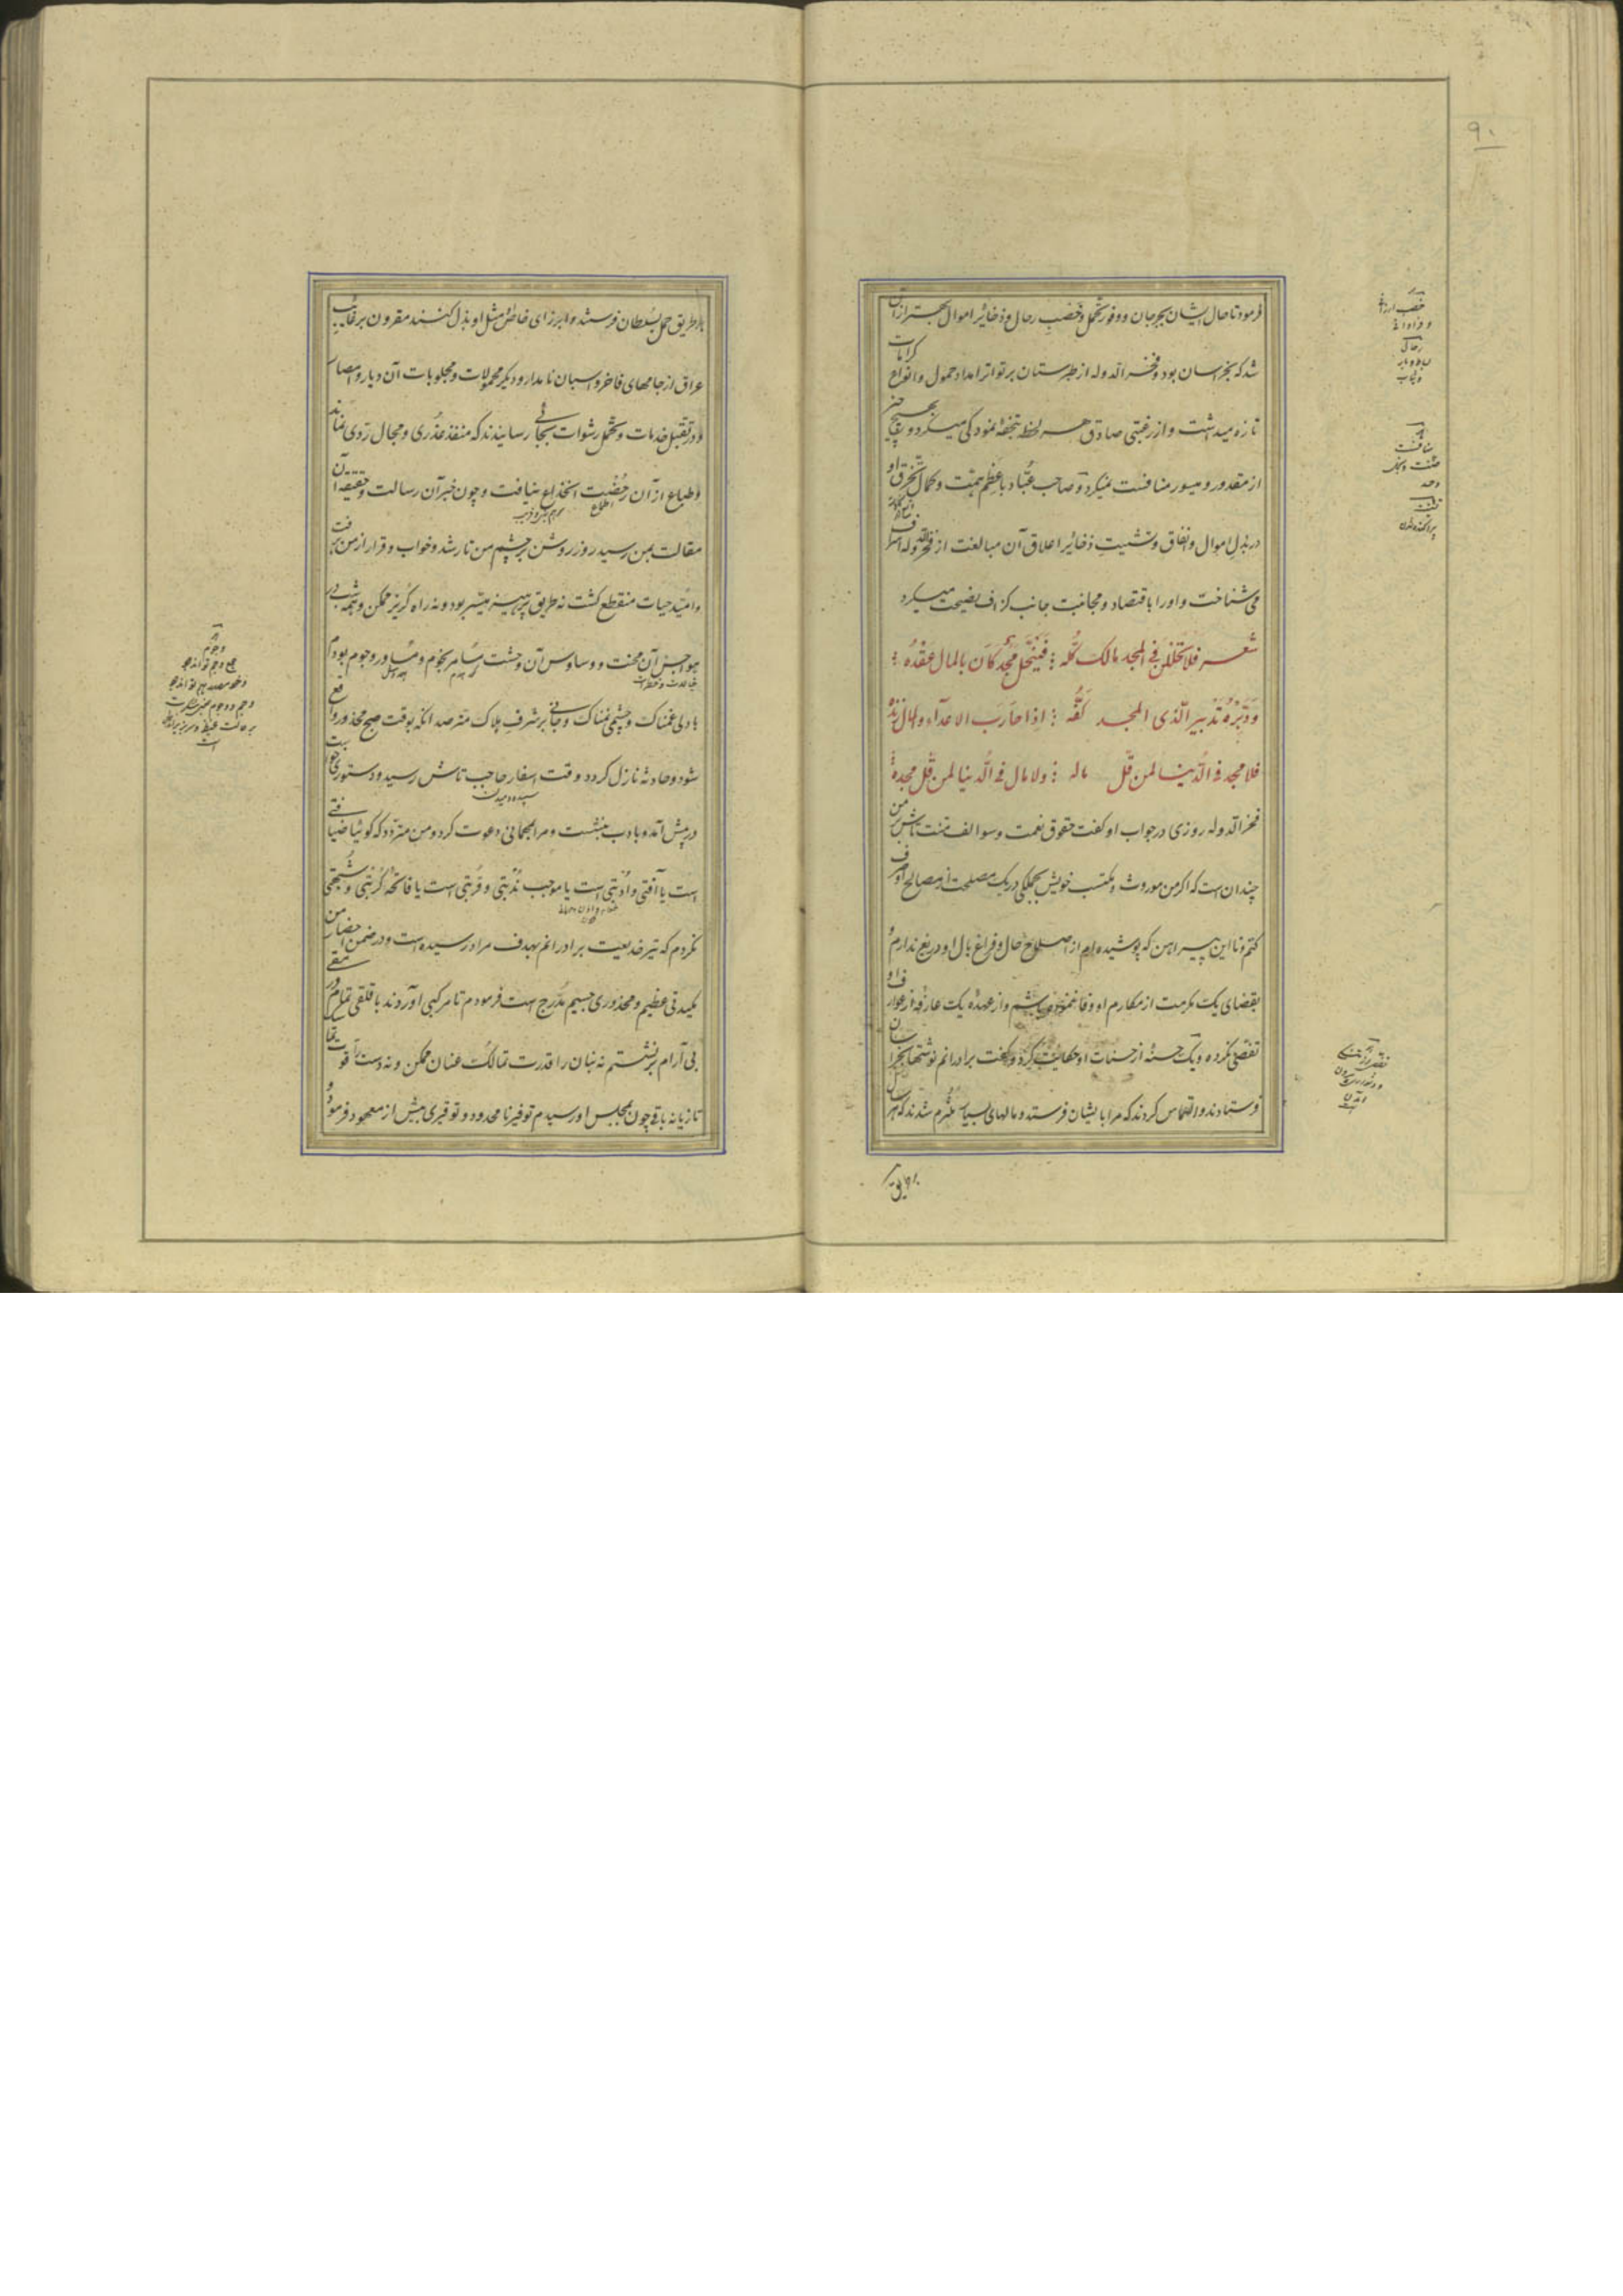 ۹۰
فرمود تا حال ایشان بجرجان و وفور تجمل و خصب رحال و ذخائر اموال بهتر از آن
شد که بخراسان بود و فخر الدوله از طبرستان بر تواتر امداد حمول و انواع کرامات
تازه میداشت و از رغبتی صادق هر لحظه بتحفه نمودکی میکرد و بهیچ چیز
از مقدور و میسور منافست نمیکرد و صاحب عبّاد با عظم همّت و کمال تخرّق او
در بذل اموال و انفاق و تشتیت ذخائر اعلاق آن مبالغت از فخر الدوله اسراف
می شناخت و او را باقتصاد و مجانبت جانب کزاف نصیحت میکرد
شعر فلا تحللن فی المجد مالک کلّه فینحلّ مجد کان بالمال عقده
ودبّره تدبیر الّذی المجد کفّه اذا حارب الاعداء والمال زنده
فلا مجد فی الدّنیا لمن قلّ ماله ولا مال فی الدّنیا لمن قلّ مجده
فخر الدوله روزی در جواب او کفت حقوق نعمت و سوالف منّت تاش بر من
چندان است که اکر من موروث و مکتسب خویش بجملکی در یک مصلحت از مصالح او صرف
کنم و تا این پیراهن که پوشیده ام از اصلاح حال و فراغ بال او دریغ ندارم و
بقضای یک مکرمت از مکارم او وفا ننموده باشم و از عهده یک عارفه از عوارف او
تفصّی نکرده و یک حسنه از حسنات او حکایت کرد و کفت برادرانم نوشتها بخراسان
فرستادند و التماس کردند که مرا بایشان فرستد و مالهای بسیار ملتزم شدند که هر سال
بر طریق
خصب
رحال
منافست
بر طریق حمل بسلطان فرستند و ابرزای خاصّ مثل او بذل کنند مقرون برغائب
عراق از جامهای فاخر و اسبان نامدار و دیکر محمولات و مجلوبات آن دیار و امصار
و در تقبّل خدمات و تحمّل رشوات بجائی رسانیدند که منفذ عذری و مجال ردّی نماند
و طباع از آن رخصت انخداع نیافت و چون خبر آن رسالت و حقیقه آن
مقالت بمن رسید روز روشن بر چشم من تار شد و خواب و قرار از من برفت
و امّید حیات منقطع کشت نه طریق پرهیز میّسر بود و نه راه کریز ممکن و همه شب در
هواجس آن محنت و وساوس آن وحشت مسامر نجوم و مساور وجوم بودم
با دلی غمناک و چشمی نمناک و جانی بر شرف هلاک مترصد آنکه بوقت صبح محذور واقع
شود و حادثه نازل کردد وقت اسفار حاجب تاش رسید و دستوری خواست
در پیش آمد و بادب بنشست و مرا بمهمانی دعوت کرد و من متردّد که کوئیا ضیافتی
است یا آفتی و ادبتی است یا موجب ندبتی و قربتی است یا فاتحه کربتی و شک
نکردم که تیر خدیعت برادرانم بهدف مراد رسیده است و در ضمن احضار من
مکیدتی عظیم و محذوری جسیم مدرج است فرمودم تا مرکبی آوردند با قلقی تمام و رمقی
بی آرام برنشستم نه بنان را قدرت تمالک عنان ممکن و نه دست را قوت
تازیانه باقی چون بمجلس او رسیدم توفیر نا محدود و توقیری بیش از معهود فرمود و
وجوم